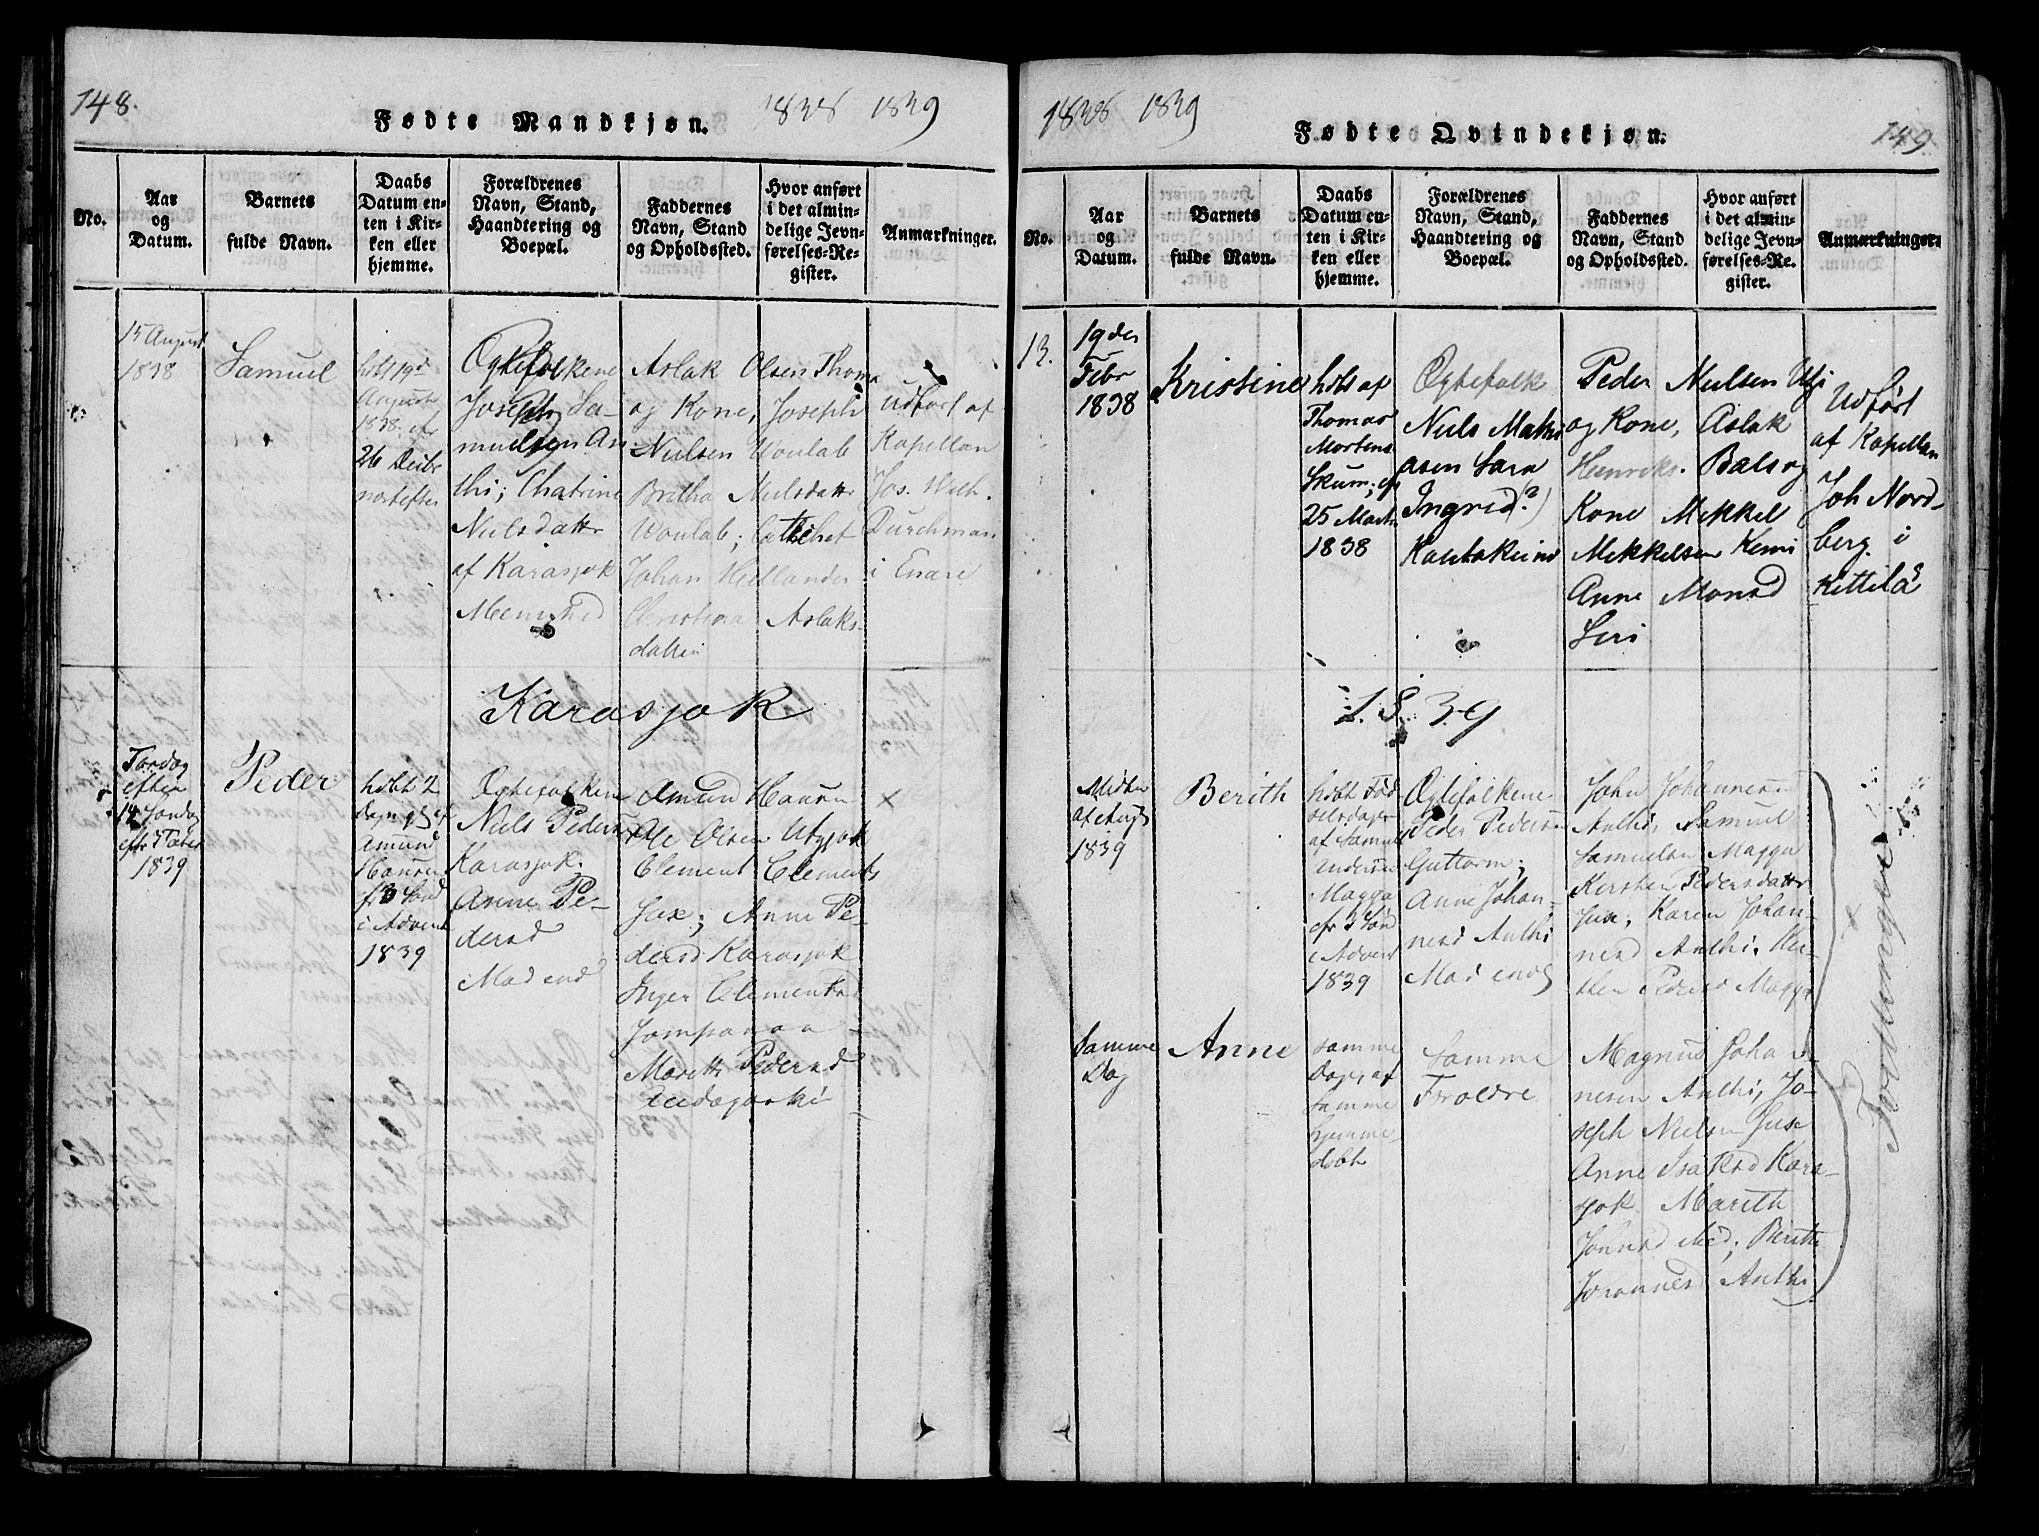 148.
Fødte Mandkjøn.
1838 1839
No.
Aar
og
Datum.
Barnets
fulde Navn.
Daabs
Datum en-
ten i Kir-
ken eller
hjemme.
Forældrenes
Navn, Stand,
Haandtering og
Boepæl.
Faddernes
Navn, Stand
og Opholdssted.
Hvor anført
i det almin-
delige Jevn-
førelses-Re-
gister.
Anmærkninger.
15 August
1838
Samuel
döbt 19d
August
1838. efr
26 Decbr
Ogtefolkene
Joseph Sa-
muelsen An
thi; Chatrine
Nielsdattr
af Karasjok
Aslak Olsen Thoma
og Kone, Joseph
Nielsen Woulab
Britha Nielsdattr
Woulab; Cathechet
Johan Hellander
Christina Aslaks-
datter
Udført af
Kapellan
Jos. Wilh.
Durchman
i Enare
Karasjok
Tordag
efter
14 Søndag
1839
Peder
döbt 2
Dage af
Amund
Hansen
Sönd
i Advent
1839
Ogtefolkene
Niels Pederse
Karasjok.
Anne Pe-
dersd
Amund Hansen
Ole Olsen Utsjok
Clement Clements
Jax; Anne Pe-
dersd Karasjok
Inger Clementsd
Marith Pedersd
x
1838 1839
Fødte Qvindekjøn.
149.
No.
Aar
og
Datum.
Barnets
fulde Navn.
Daabs
Datum en-
ten i Kir-
ken eller
hjemme.
Forældrenes
Navn, Stand,
Haandtering og
Boepæl.
Faddernes
Navn, Stand
og Opholdssted.
Hvor anført
i det almin-
delige Jevn-
førelses-Re-
gister.
Anmærkninger.
13.
19 des
Febr
1838
Kristine
döbt af
Thomas
Mortens
Skum; efr
25 Marts
1838
Ogtefolk
Niels Mathi
asen Sara
Ingrid (?)
Kautokeino
Peder Nielsen Utsi
og Kone, Aslak
Henriks. Bals og
Kone Mekkel
Mekkelsen Kemi
Anne Monsd
Siri
Udført
af Kapellan
Joh Nord-
berg i
Kittilä
1839
Midten
af Augs
1839
Berith
döbt Föd-
selsdagen
af Samuel
Andersen
Magga
efr 3 Sönd
i Advent
1839
Ogtefolkene
Peder Pedersen
Guttorm;
Anne Johan-
nesd Anthi
John Johannesen
Anthi, Samuel
Samuelsen Magga
Kersten Pedersdattr
Jux, Karen Johan-
nesd Anthi, Ker-
sten Pedersd Magga
Samme
Dag
Anne
samme
Dag af
samme
hjemme-
döbt
Samme
Foroldre
Magnus Johan-
nesen Anthi, Jo-
seph Nielsen Juxe
Anne Isaksd Kara-
sjok Marith
Johnsd Æd; Berith
Johannes Anthi
Tvillinger
x